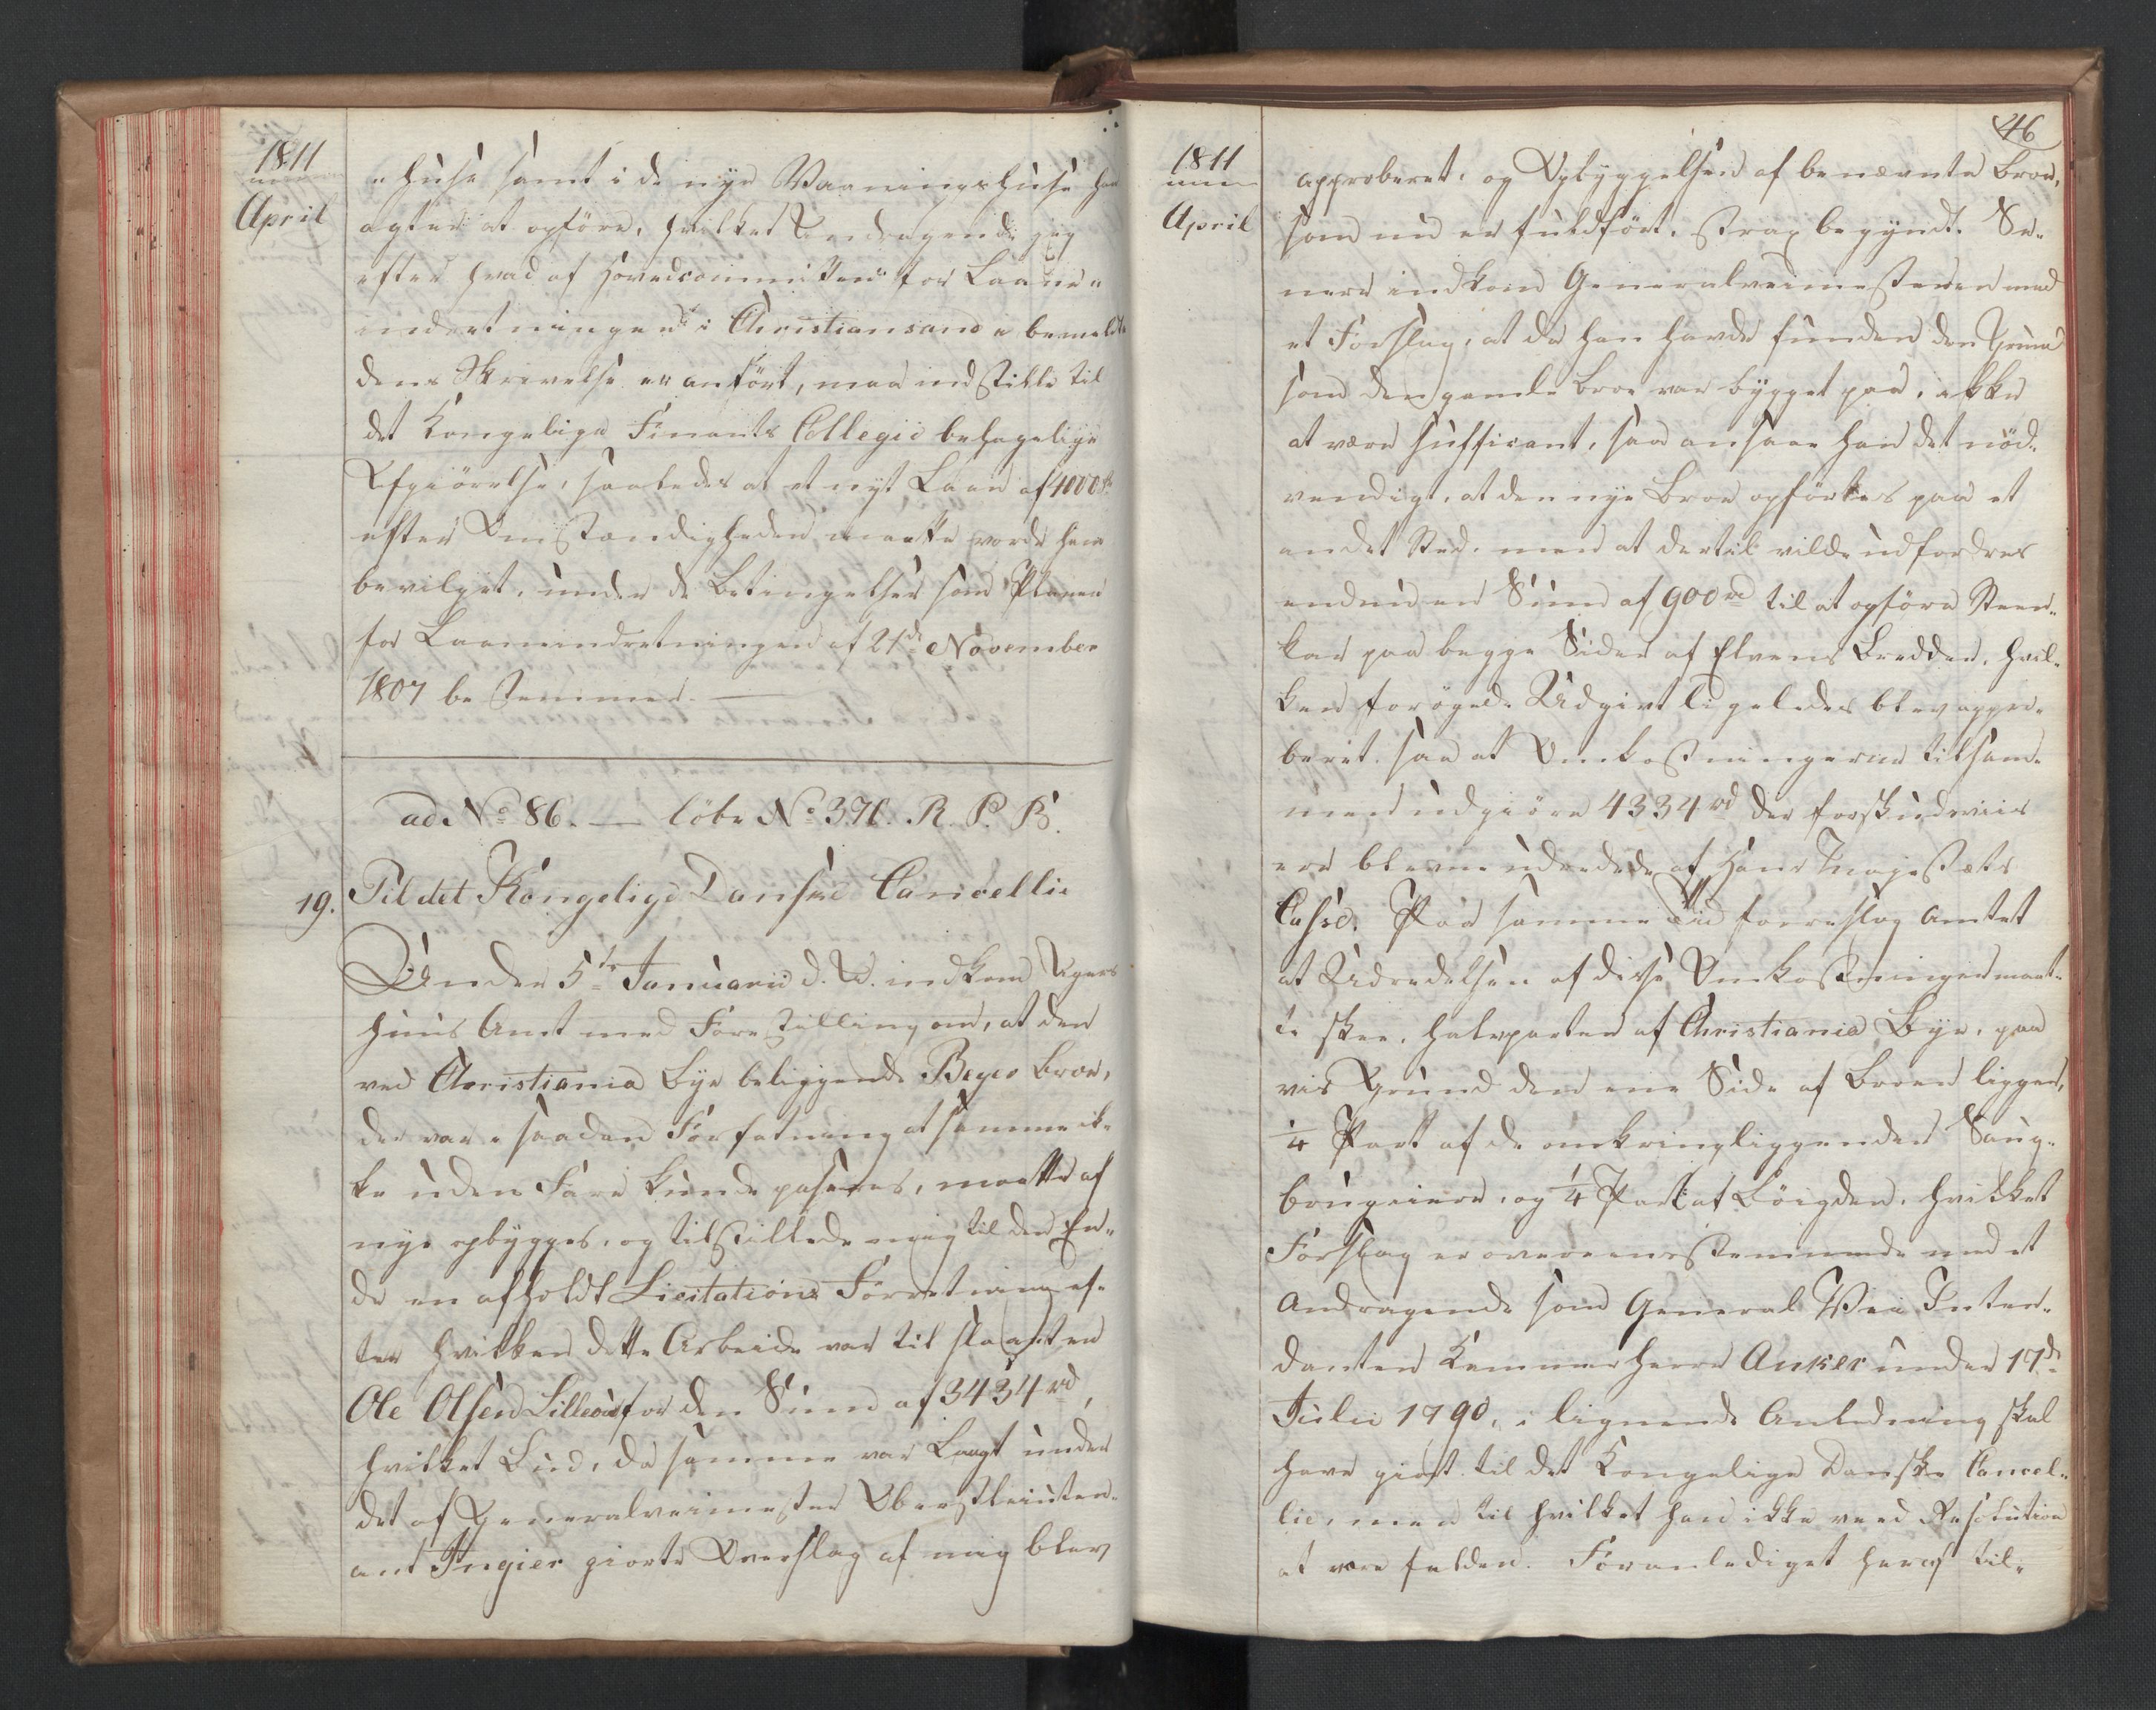 1811
April
"huse samt i de nye Vaaningshuse han
agter at opføre, hvilket Andragende jeg
efter hvad af Hovedcommitteen for Laane"
indretningen i Christiansand i bemeldte
dens Skrivelse er anført, maa indstille til
det Kongelige Finants Collegii behagelige
Afgiørelse, saaledes at et nyt Laan af 4000 rd
efter Omstændigheden maatte vorde ham
bevilget, under de Betingelser som Planen
for Laaneindretningen af 21de November
1807 bestemmer. —
ad No 86. — löbe No 371. R. P. B.
19. Til det Kongelige Danske Cancellie
Under 5te Januarii d. A. indkom Agers
huus Amt med Forestilling om, at den
ved Christiania Bye beliggende Beyer Broe,
der var i saadan Forfatning at samme ik-
ke uden Fare kunde paseres, maatte af
nye opbygges, og tilstillede mig til den En-
de en afholdt Licitations Forretning ef-
ter hvilken dette Arbeide var tilslaaet en
Ole Olsen for den Sum af 3434 rd,
hvilket Bud, da samme var Langt under
det af Generalveimester Oberstleiuten-
ant Ingier giorte Overslag af mig blev
46
1811
April
approberet, og Opbyggelsen af benævnte Broe,
som nu er fuldført, strax begyndt. Se-
nere indkom Generalveimesteren med
et Forslag, at da han havde funden den Grund
som den gamle Broe var bygget paa, ikke
at være sufficant, saa ansaae han det nød-
vendigt, at den nye Broe opførtes paa et
andet Sted, men at dertil vilde udfordres
endnu en Sum af 900 rd til at opføre Steen-
kar paa begge Sider af Elvens Bredder, hvil-
ken forøgede Udgivt ligeledes blev appro-
beret, saa at Omkostningerne tilsam-
men udgiøre 4334 rd der forskudsviis
ere blevne udredede af Hans Majestæts
Casse. Paa samme Tid foreslog Amtet
at Udredelsen af disse Omkostninger maat-
te skee, halvparten af Christiania Bye, paa
vis Grund den ene Side af Broen ligger,
1/4 Part af de omkringliggende Saug-
brugeiere, og 1/4 Part af Bøigden, hvilket
Forslag er overeensstemmende med et
Andragende som General Vei Inten-
danten Kammerherre Anker under 17de
Julii 1790, i lignende Anledning skal
have giort til det Kongelige Danske Cancel-
lie, men til hvilket han ikke veed Resolution
at være falden. Foranlediget heraf til-